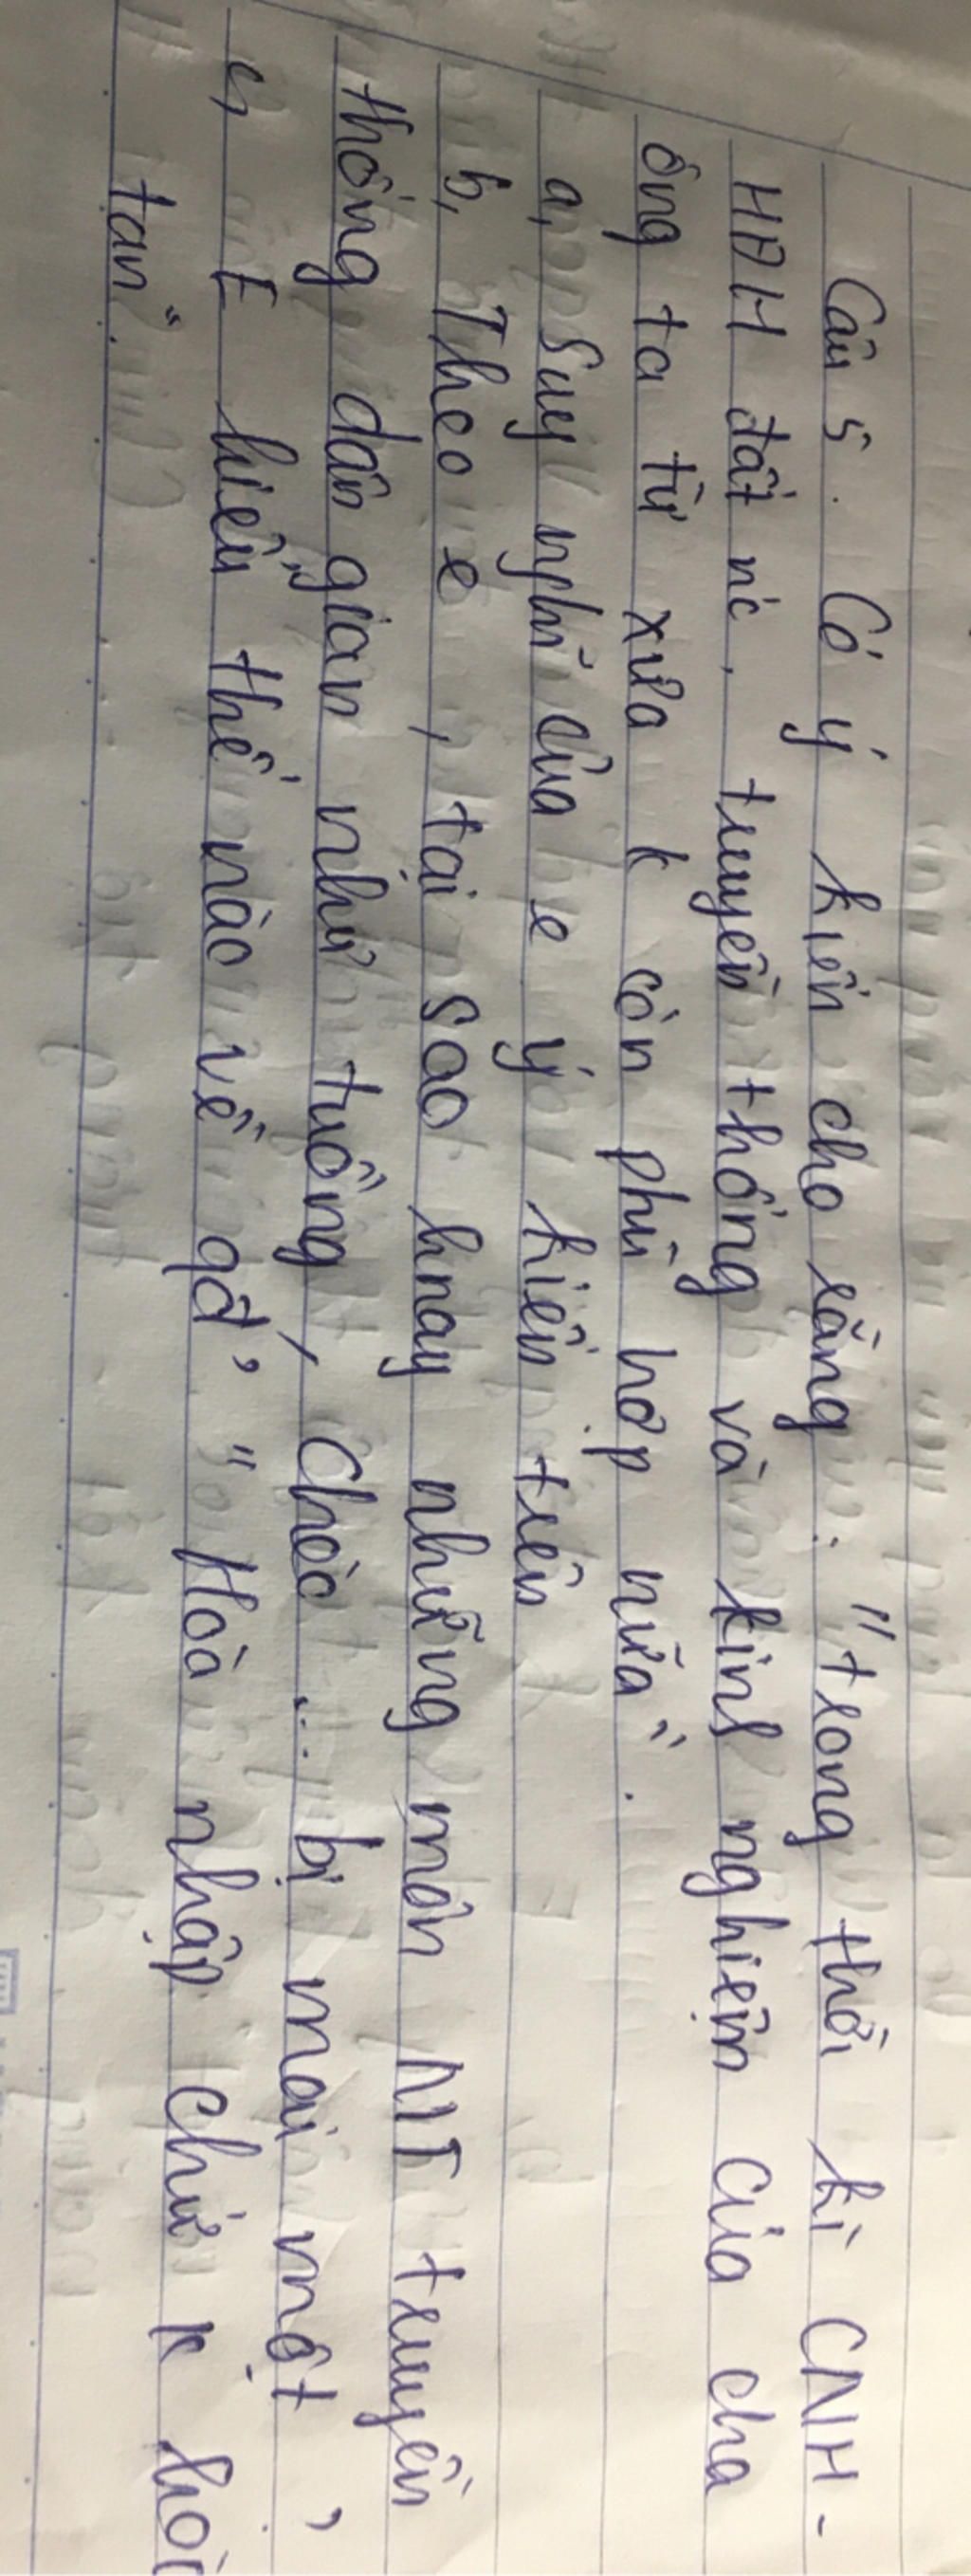 Câu 5. Có ý kiến cho rằng: "trong thời kì CNH-
HĐH đất nc, truyền thống và kinh nghiệm của cha
ông ta từ xưa k còn phù hợp nữa".
a, Suy nghĩ của e ý kiến trên
b, Theo e, tại sao hnay những môn NT truyền
thống dân gian như tuồng, chèo... bị mai một,
c, E hiểu thế nào về qđ, "Hoà nhập chứ k hoà
tan".